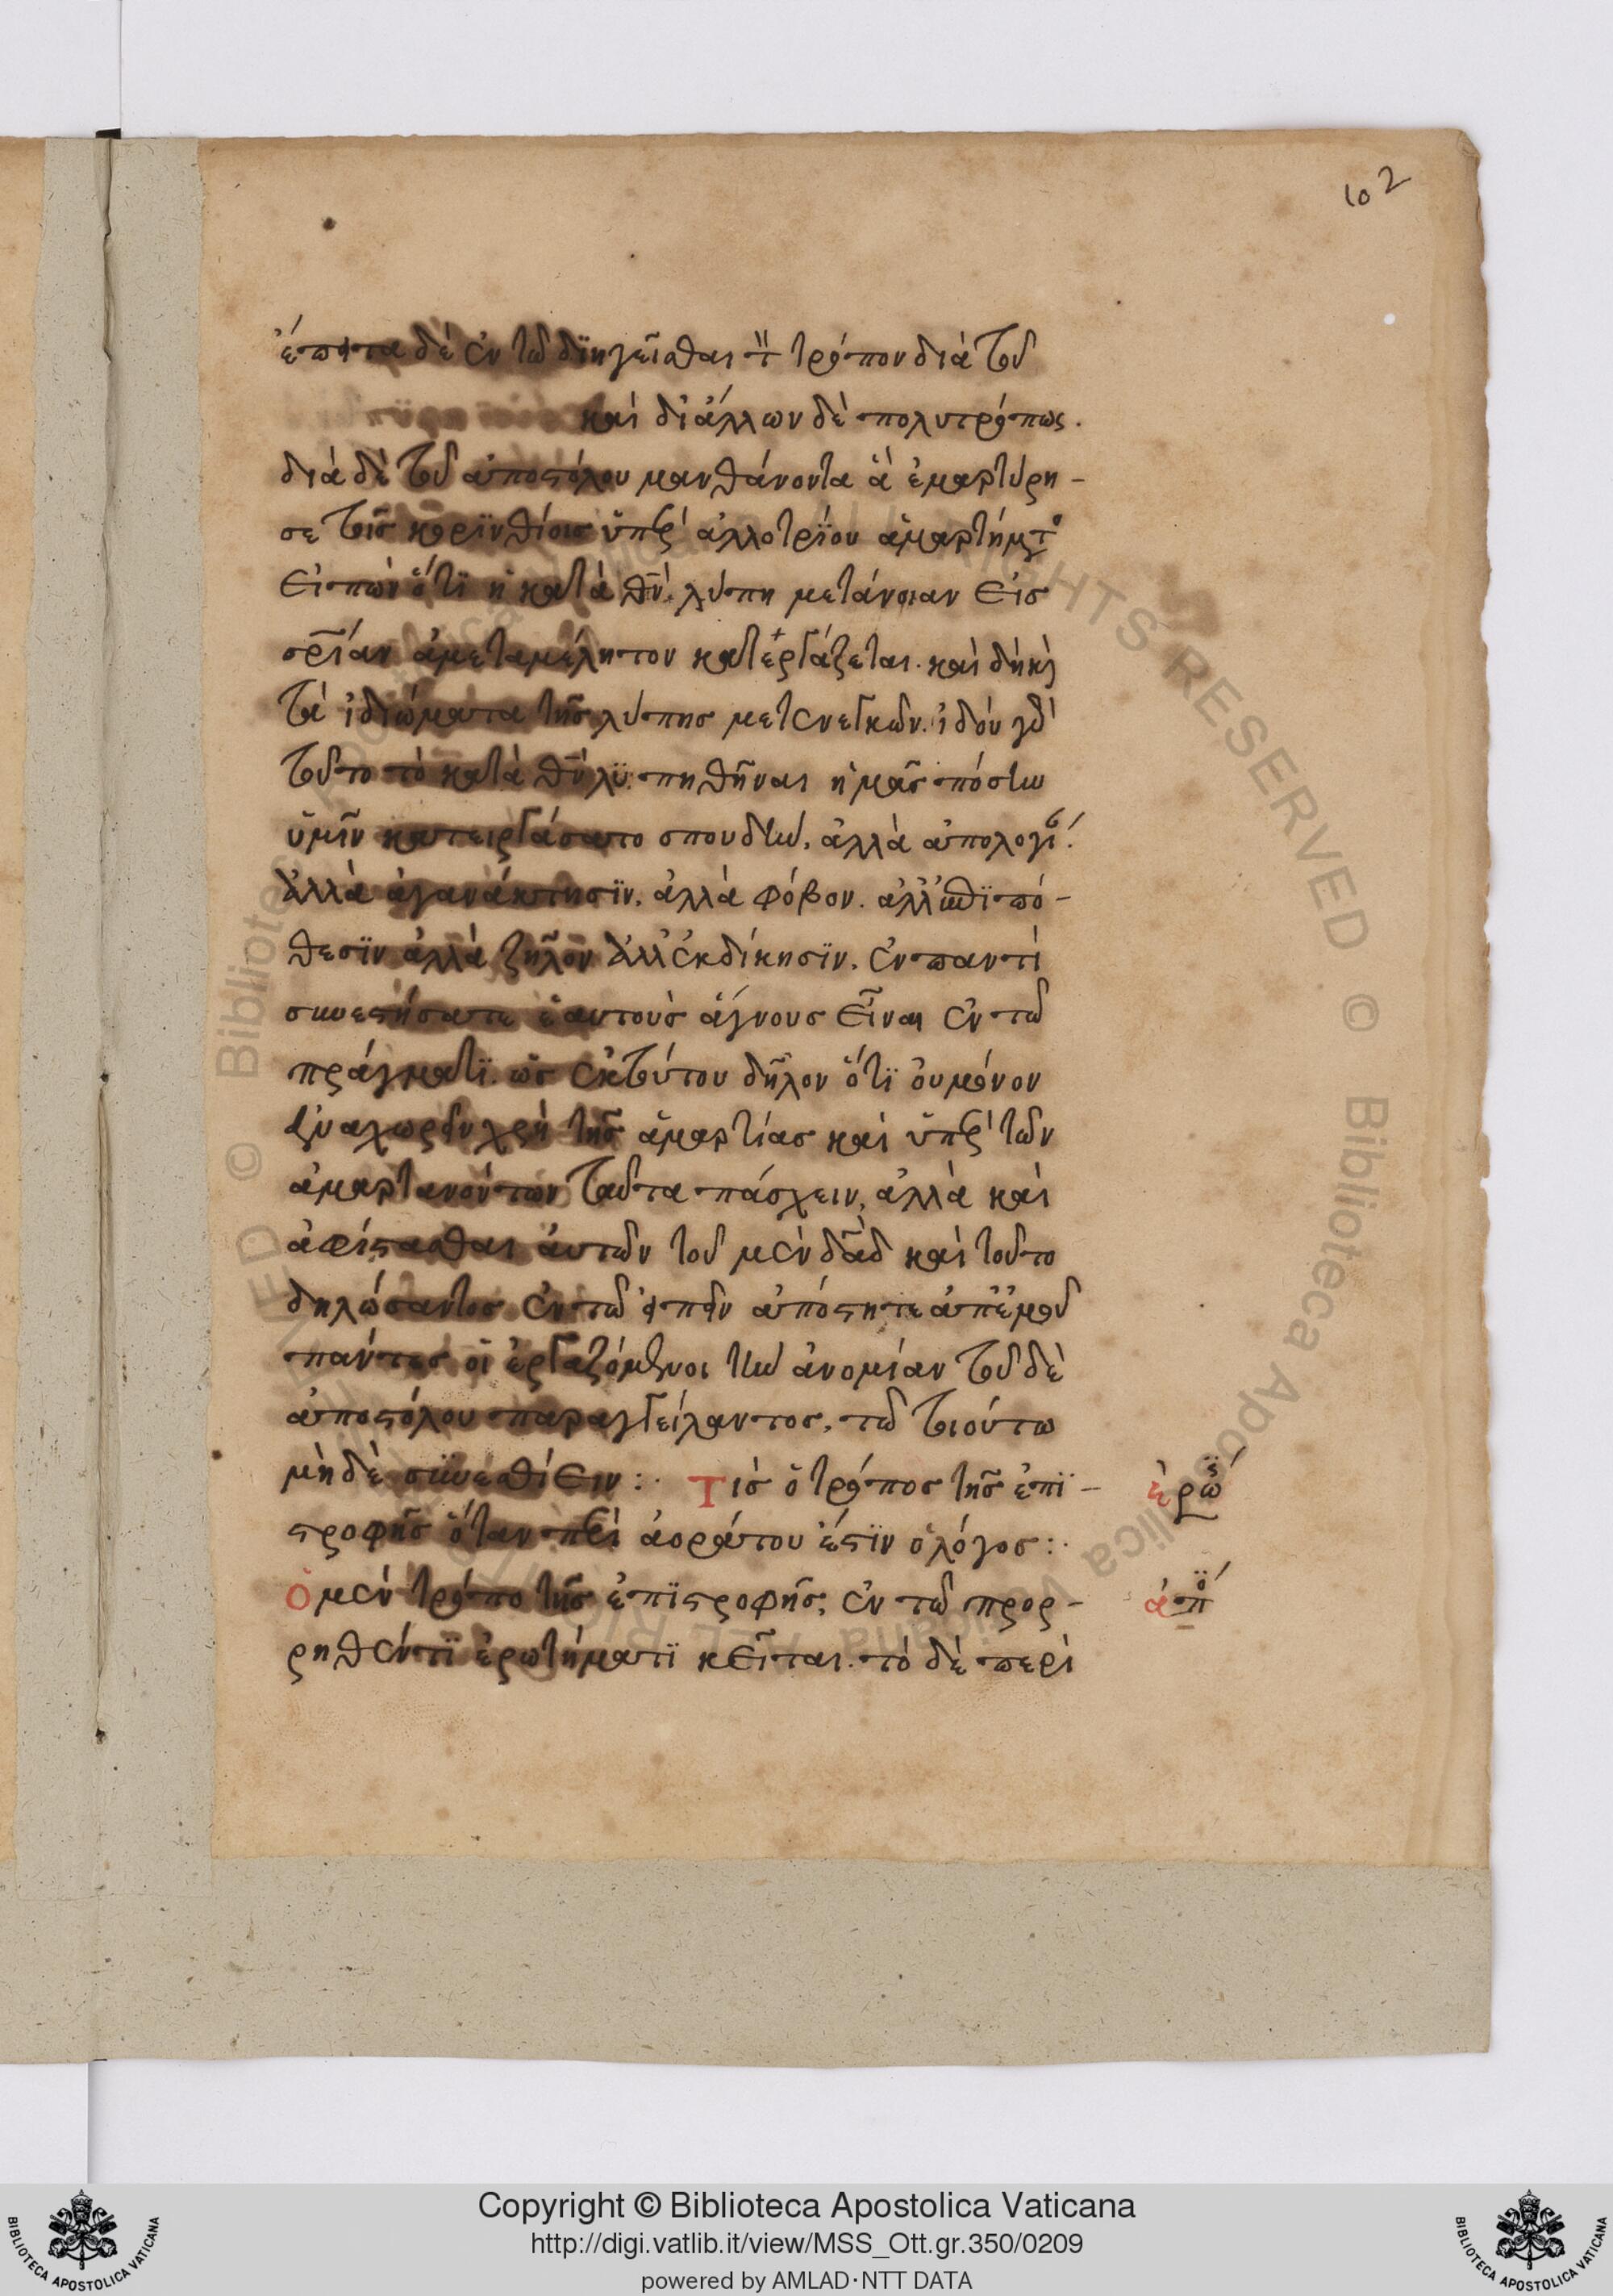 102
ἔπειτα δὲ ἐν τῶ διηγεῖσθαι τ̀ τρόπον διὰ τοῦ
καὶ δι ἄλλων δὲ πολυτρόπως.
διὰ δὲ τοῦ ἀποστόλου μανθάνοντα ἃ ἐμαρτύρη-
σε τοῖς κορϊνθίοις ὑπὲρ ἀλλοτρΐου ἁμαρτήμτο
εἰπὼν ὅτϊ ἡ κατὰ θν̄ λύπη μετάνοιαν εἰς
σρ̄ίαν ἀμεταμέλητον κατεργάζεται. καὶ δὴ κ̀
τὰ ἰδιώματα τῆς λύπης μετενεγκὼν. ἰδοὺ γὰ
τοῦτο τὸ κατὰ θν̄ λϋπηθῆναι ἡμᾶς πόσην
ὑμῖν κατειργάσατο σπουδὴν, ἀλλὰ ἀπολογί.
ἀλλὰ ἀγανάκτησϊν, ἀλλὰ φόβον. ἀλλ ἐπϊπό-
θεσϊν ἀλλὰ ζῆλον ἀλλ ἐκδίκησϊν, ἐν παντὶ
συνεστήσατε ἑαυτοὺς ἁγνους εἶναι ἐν τῶ
πράγματϊ. ὡς ἐκ τούτου δῆλον ὅτϊ οὐ μόνον
ἀναχωρεῖν χρὴ τῆς ἁμαρτίας καὶ ὑπὲρ τῶν
ἁμαρτανόντων ταῦτα πάσχειν, ἀλλὰ καὶ
ἀφίστασθαι αὐτῶν τοῦ μὲν δᾱδ καὶ τοῦτο
δηλώσαντος ἐν τῶ εἰπεῖν ἀπόστητε ἀπ ἐμοῦ
πάντες οἱ ἐργαζόμενοι τὴν ἀνομίαν τοῦ δὲ
ἀποστόλου παραγγείλαντος, τῶ τοιούτω
μὴ δὲ συνεσθίειν :· Τίς ὁ τρόπος τῆς ἐπϊ-
στροφῆς ὅταν περὶ ἀοράτου ἐστϊν ὁ λόγος :·
Ὁ μὲν τρόπο τῆς ἐπϊστροφῆς, ἐν τῶ προρ-
ρηθέντϊ ἐρωτήματϊ κεῖται. τὸ δὲ περὶ
ἐρώ
ἀπό
Copyright © Biblioteca Apostolica Vaticana
http://digi.vatlib.it/view/MSS_Ott.gr.350/0209
powered by AMLAD·NTT DATA
BIBLIOTECA APOSTOLICA VATICANA
BIBLIOTECA APOSTOLICA VATICANA